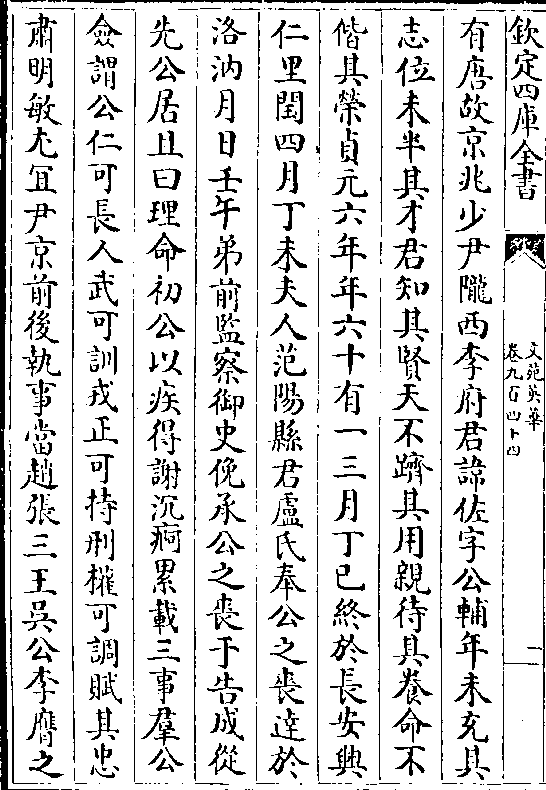 欽定四庫全書
文苑英華
卷九百四十四
二
有唐故京兆少尹隴西李府君諱佐字公輔年未充其
志位未半其才君知其賢天不躋其用親待其養命不
偕其榮貞元六年年六十有一三月丁巳終於長安興
仁里閏四月丁未夫人范陽縣君盧氏奉公之喪達於
洛汭月日壬午弟前監察御史俛承公之喪于告成從
先公居且曰理命初公以疾得謝沉痾累載三事羣公
僉謂公仁可長人武可訓戎正可持刑權可調賦其忠
肅明敏尤宜尹京前後執事當趙張三王吳公李膺之